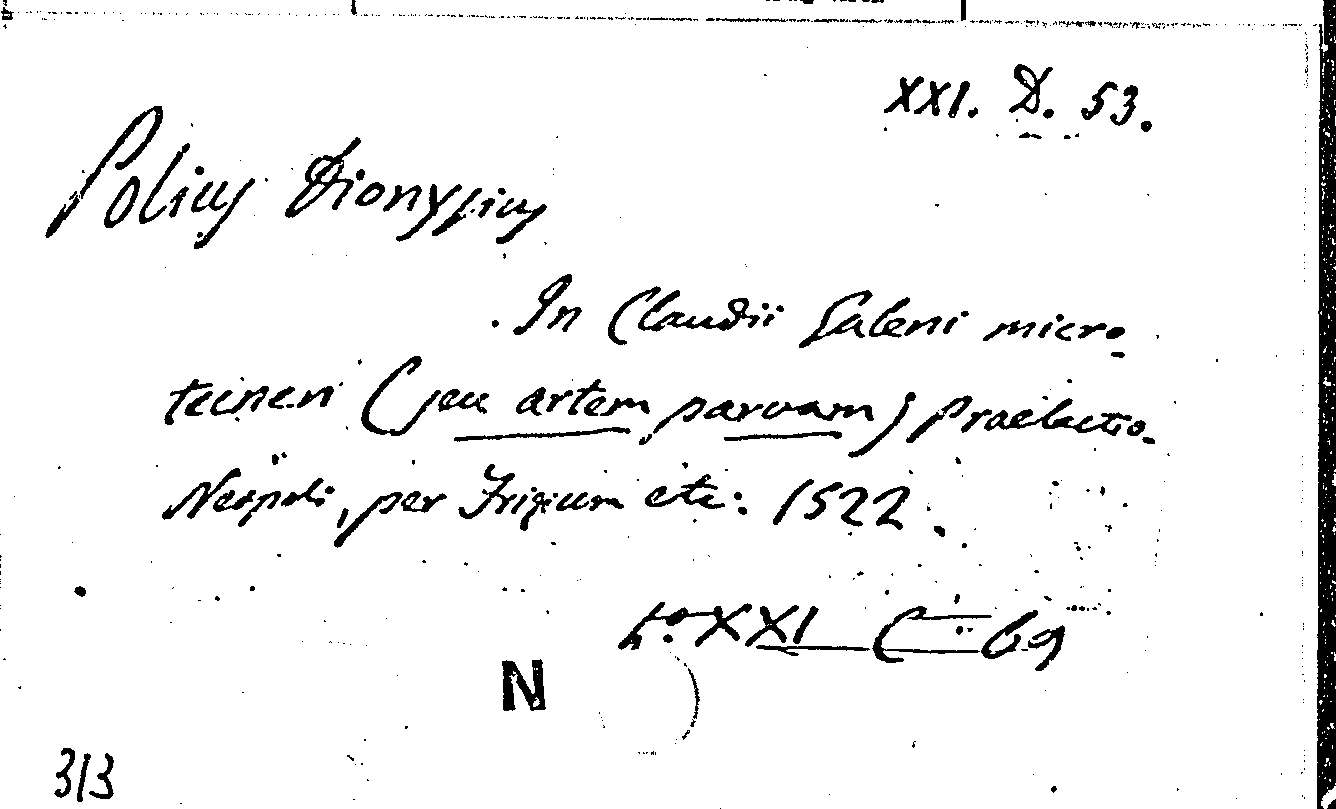 XXI. D. 53.
Polius Dionysius
In Claudii Galeni micro-
tecnen (seu artem parvam) Praelectio.
Neapoli, per Frigium etc: 1522.
4.º XXI C 69
N
313